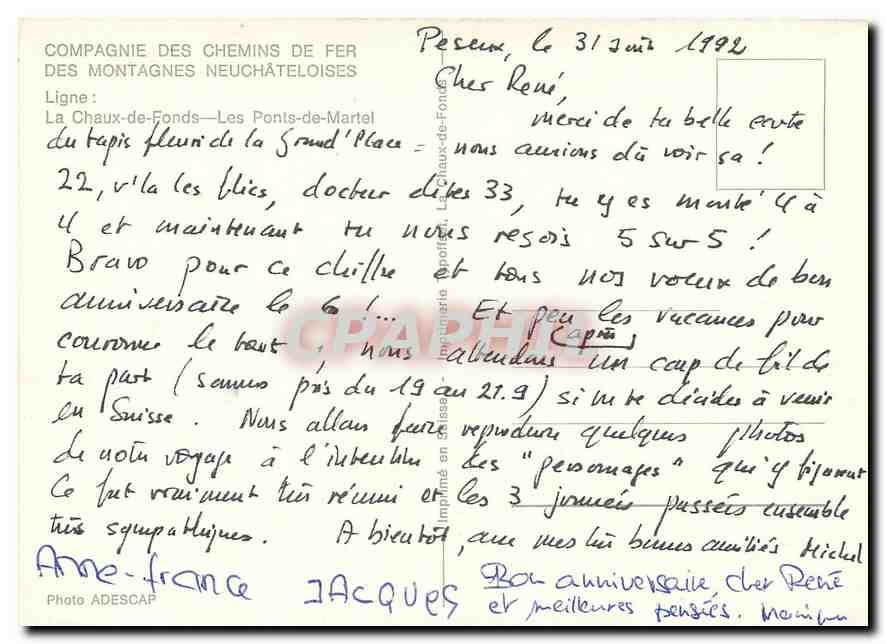 COMPAGNIE DES CHEMINS DE FER
DES MONTAGNES NEUCHÂTELOISES
Ligne :
La Chaux-de-Fonds—Les Ponts-de-Martel
Peseux, le 31 août 1992
Cher René,
merci de ta belle carte
du tapis fleuri de la Grand'Place = nous aurions dû voir sa !
22, v'la les flics, docteur dites 33, tu y es monté 4 à
4 et maintenant tu nous resois 5 sur 5 !
Bravo pour ce chiffre et tous nos voeux de bon
anniversaire le 6 !... Et peu les vacances pour
(après)
couronne le tout, nous attendons un coup de fil de
ta part (sommes pris du 19 au 21.9) si tu te décides à venir
en Suisse. Nous allons faire reproduire quelques photos
de notre voyage à l'intention des "personnages" qui y figurent
Ce fut vraiment très réussi et les 3 journées passées ensemble
très sympathiques. A bientôt, avec mes très bonnes amitiés Michel
Anne-france
JACQUES
Bon anniversaire, cher René
et meilleures pensées.
Photo ADESCAP
Imprimé en Suisse
La Chaux-de-Fonds
CPAPHIL